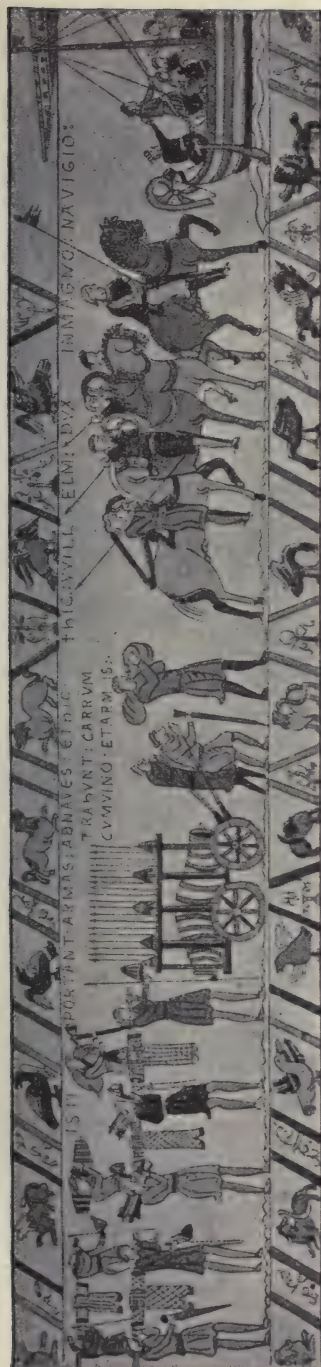 ISTI PORTANT ARMAS: ADNAVES: EThIC
TRAhVNT: CARRVM
CVMVINO: ETARMIS:
†hIC: WILLELM: DVX INMAGNO: NAVIGIO: